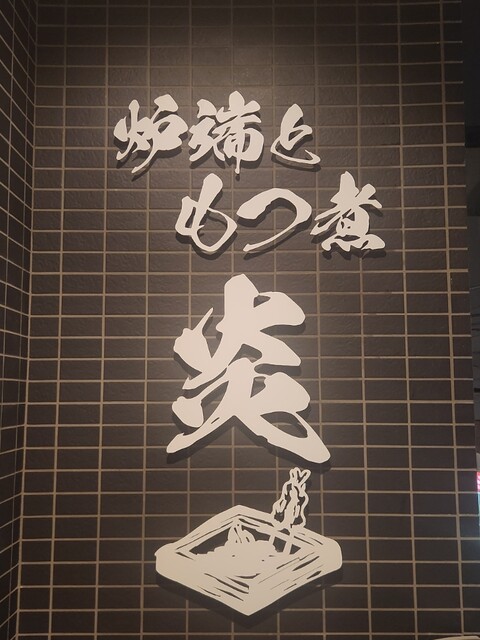 炉端と
もつ煮
炎